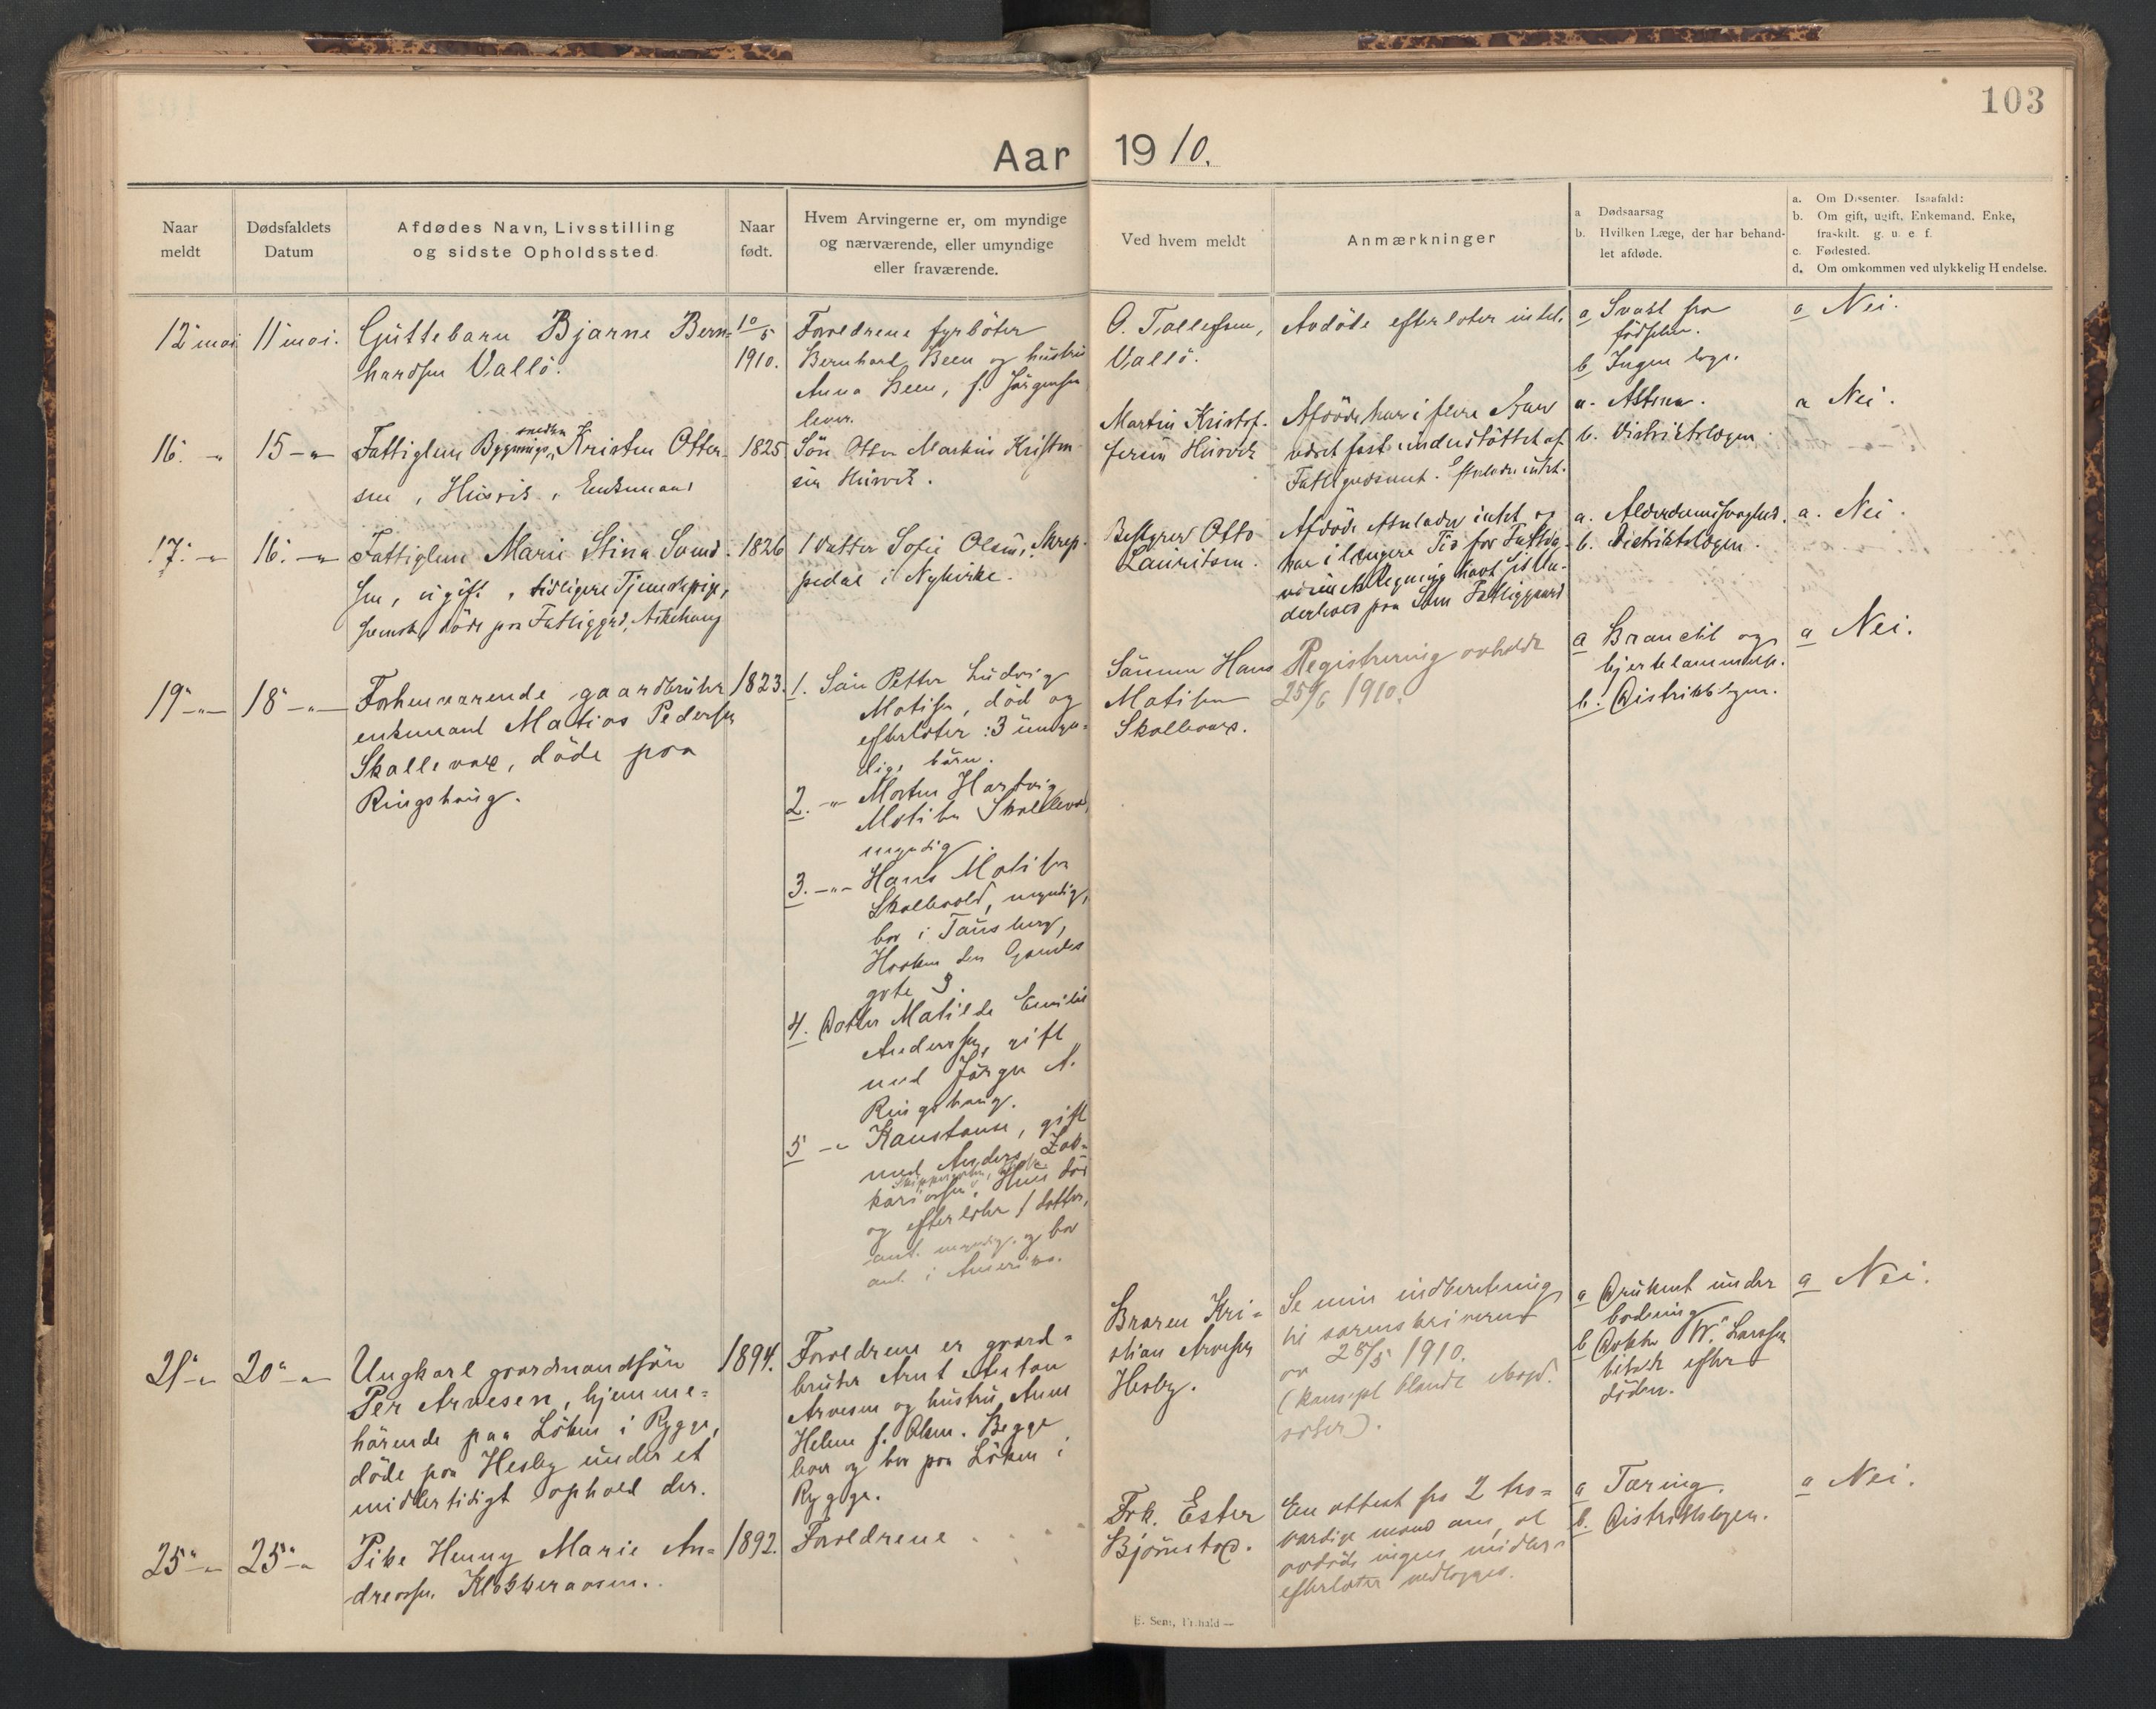 103
Aar 1910.
Naar
meldt
Dødsfaldets
Datum
Afdødes Navn, Livsstilling
og sidste Opholdssted.
Naar
født.
Hvem Arvingerne er, om myndige
og nærværende, eller umyndige
eller fraværende.
Ved hvem meldt
Anmærkninger
a Dødsaarsag
b. Hvilken Læge, der har behand-
let afdøde.
a. Om Dissenter. Isaafald:
b. Om gift, ugift, Enkemand, Enke,
fraskilt. g. u. e. f.
c. Fødested.
d. Om omkommen ved ulykkelig Hendelse.
12 mai
11 mai.
Guttebarn Bjarne Bern-
hardsen Vallö.
10/5
1910.
Foreldrene fyrböter
Bernhard Been og hustru
Anna Been, f. Jörgensen
lever.
O. Tollefsen,
Vallö.
Avdöde efterloter intet.
a Svakt fra
födselen.
b Ingen lege.
a Nei.
16. -"-
15 -"-
Fattiglem Bygnings Kristen Otter-
snedker
sen, Husvik, Enkemand
1825
Sön Otter Markus Kristen-
sen Husvik.
Martin Kristof-
fersen Husvik
Afdöde har i flere Aar
været fast understöttet af
Fattigvæsenet. Efterlader intet.
a. Astma.
b. Distriktslægen
a Nei.
17. -"-
16. -"-
Fattiglem Marie Stina Svend-
sen, ugift, tidligere Tjenestepige,
svensk, döde paa Fattiggrd. Askehaug
1826
1 Datter Sofie Olsen, Skrep-
pedal i Nykirke.
Bestyrer Otto
Lauritsen.
Afdöde efterlader intet og
har i længere Tid for Fattig-
væsenets Regning havt sit Un-
derhold paa Sem Fattiggaard
a. Alderdomssvaghed.
b. Distriktslægen.
a. Nei.
19 -"-
18 -"-
Forhenværende gaardbruker
enkemand Matias Pedersen
Skallevold, döde paa
Ringshaug.
1823.
1. Sön Petter Ludvig
Matisen, död og
efterloter: 3 umyn-
dige börn.
2. -"- Morten Hartvig
Matisen Skallevold,
myndig.
3. -"- Hans Matisen
Skallevold, myndig,
bor i Tönsberg,
Haakon den Gamles
gate 3.
4. Dotter Matilde Emilie
Andersen, gift
med Jörgen A.
Ringshaug.
5 -"- Konstanse, gift
med Anders Zak-
kariassen. Hun död
og efterloter 1 dotter,
ant. myndig, og bor
ant. i Amerika.
Sönnen Hans
Matisen
Skallevold.
Registrering avholdt
25/6 1910.
a Brandfil og
hjertelammelse.
b. Distriktslegen.
a Nei.
21 -"-
20 -"-
Ungkarl gaardmandsön
Per Arvesen, hjemme-
hörende paa Löken i Rygge,
döde paa Hesby under et
midlertidigt ophold der.
1894.
Foreldrene er gaard-
bruker Arnt Anton
Arvesen og hustru Anne
Helene f. Olsen. Begge
lever og bor paa Löken i
Rygge.
Broren Kri-
stian Arvesen
Hesby.
Se min indberetning
til sorenskriveren
av 28/5 1910.
a Druknet under
badning
b Doktor W. Larssen
tilstede efter
döden.
a Nei.
25 -"-
25 -"-
Pike Henny Marie An-
dreassen Klokkeraasen.
1892.
Foreldrene
Frk. Ester
Bjönnstad.
En attest fra 2 tro-
værdige mænd om, at
avdöde ingen midler
efterlater vedlægges.
a Tæring.
b. Distriktslegen.
a Nei.
E. Sem, Fr.hald —